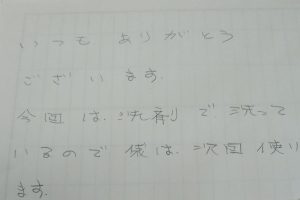 いつも ありがとう
ございます.
今回は.洗剤で.洗って
いるので 僕は.次回使い
ます.